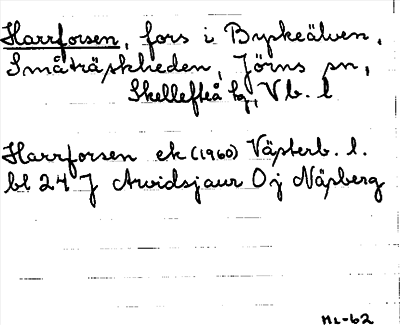 Harrforsen, fors i Byskeälven,
Småträskheden, Jörns sn,
Skellefteå kg., Vb. l
Harrforsen ek (1960) Västerb. l.
bl 24 J Arvidsjaur Oj Näsberg
ML-62